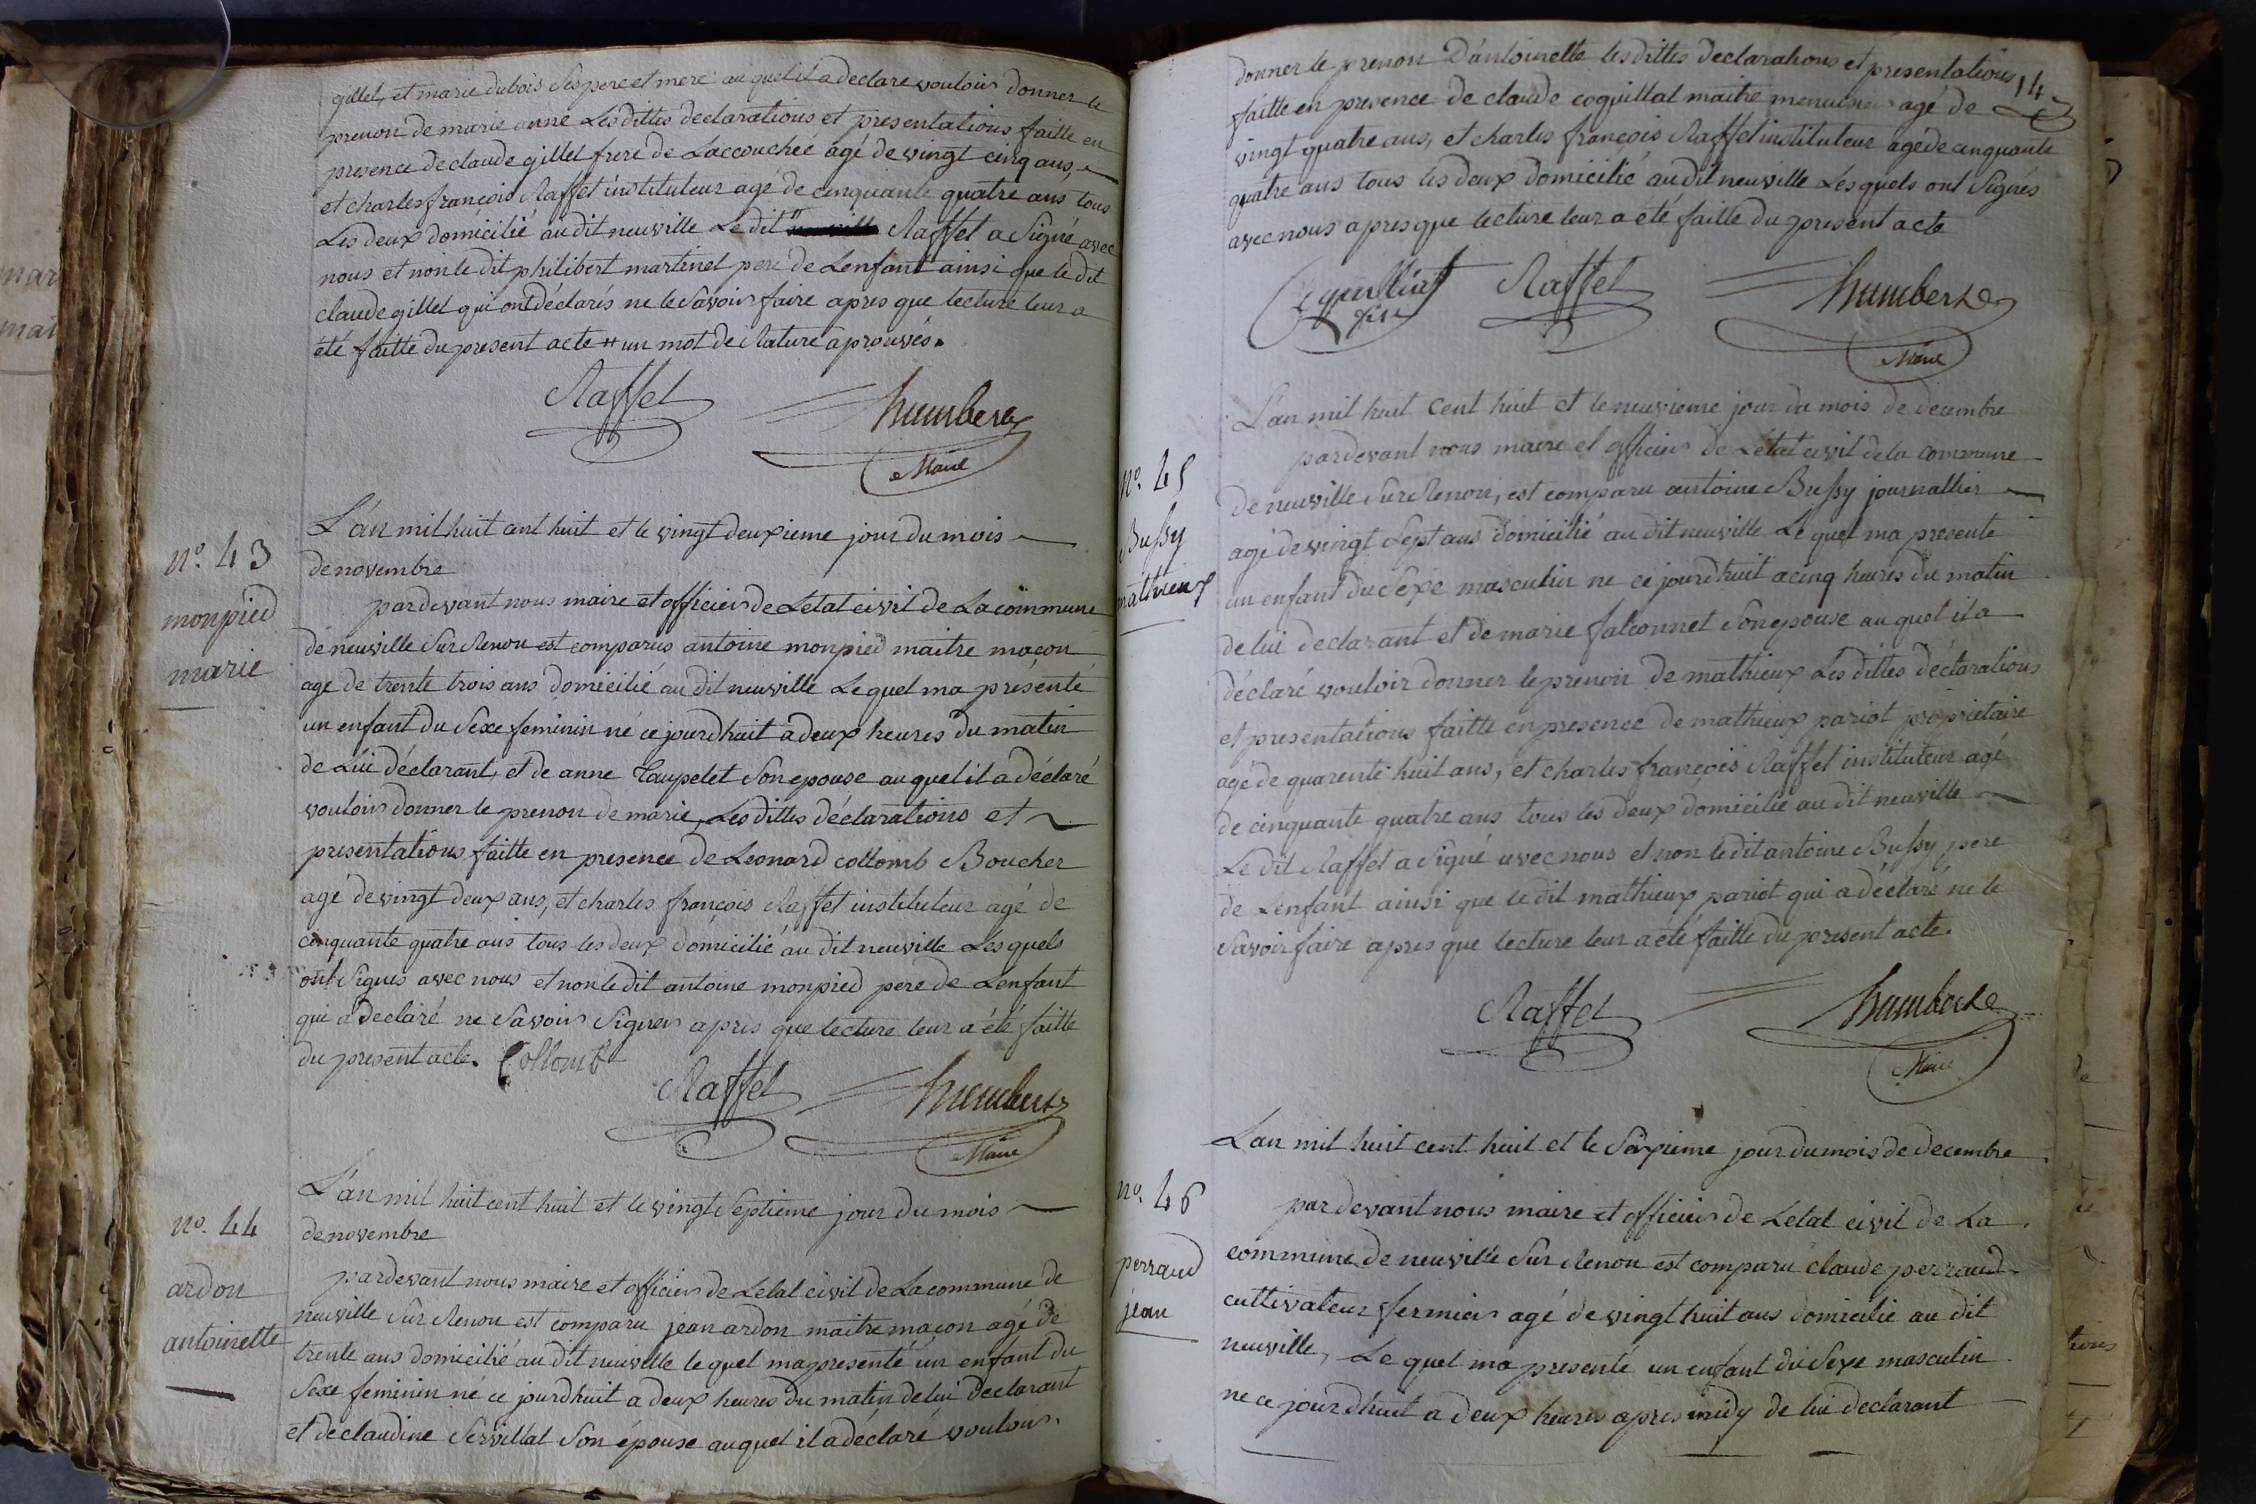 gillet, et marie dubois Ses pere et mere auquel il a declare vouloir donner le
prenon de marie anne Les dittes declarations et presentations faitte en
presence de claude gillet frere de Laccouchée agé de vingt cinq ans,
et charles françois Raffet instituteur agé de cinquante quatre ans tous
Les deux domicilié au dit neuville Le dit # Raffet a Signé avec
nous et non le dit philibert martinet pere de Lenfant ainsi que le dit
claude gillet qui ont déclarés ne le Savoir faire apres que lecture leur a
été faitte du present acte # un mot de Rature aprouvés.
Raffet
humbert
Maire
n.º 43
monpied
marie
L'an mil huit cent huit et le vingt deuxieme jour du mois
de novembre
pardevant nous maire et officier de Letat civil de La commune
de neuville Sur Renon est comparus antoine monpied maitre maçon
agé de trente trois ans domicilié au dit neuville Le quel ma presenté
un enfant du Sexe feminin né ce jourdhuit a deux heures du matin
de Lui déclarant, et de anne Taupelet Son epouse au quel il a déclaré
vouloir donner le prenon de marie, Les dittes déclarations et
presentations faitte en presence de Leonard collomb Boucher
agé de vingt deux ans, et charles françois Raffet instituteur agé de
cinquante quatre ans tous les deux domicilié au dit neuville Lesquels
ont Signés avec nous et non le dit antoine monpied pere de Lenfant
qui a déclaré ne Savoir Signer apres que lecture leur a été faitte
du present acte. Collomb
Raffet
humbert
Maire
n.º 44
ardon
antoinette
L'an mil huit cent huit et le vingt Septieme jour du mois
de novembre
pardevant nous maire et officier de Letat civil de La commune de
neuville Sur Renon est comparu jean ardon maitre maçon agé de
trente ans domicilié au dit neuville le quel ma presenté un enfant du
Sexe feminin né ce jourdhuit a deux heures du matin de lui declarant
et de claudine Servillat Son épouse au quel il a déclaré vouloir
14
donner le prenon D'antoinette les dittes declarations et presentations
faitte en presence de claude coquillat maitre menuisier agé de
vingt quatre ans, et charles françois Raffet instituteur agé de cinquante
quatre ans tous les deux domicilié au dit neuville Lesquels ont Signés
avec nous apres que lecture leur a été faitte du present acte
Coquilliat
fils
Raffet
humbert
Maire
n.º 45
Bussy
mathieux
L'an mil huit cent huit et le neuvieme jour du mois de decembre
pardevant nous maire et officier de Letat civil de la commune
de neuville Sur Renon, est comparu antoine Bussy journallier
agé de vingt Sept ans domicilié au dit neuville Le quel ma presenté
un enfant du Sexe masculin ne ce jourdhuit a cinq heures du matin
de lui declarant et de marie falconnet Son epouse au quel il a
déclaré vouloir donner le prenon de mathieux Les dittes déclarations
et presentations faitte en presence de mathieux pariot proprietaire
agé de quarente huit ans, et charles françois Raffet instituteur agé
de cinquante quatre ans tous les deux domicilié au dit neuville
Le dit Raffet a Signé avec nous et non le dit antoine Bussy pere
de Lenfant ainsi que le dit mathieux pariot qui a déclaré ne le
Savoir faire apres que lecture leur a été faitte du present acte.
Raffet
humbert
Maire
n.º 46
perraud
jean
L'an mil huit cent huit et le Seixieme jour du mois de decembre
pardevant nous maire et officier de Letat civil de La
commune de neuville Sur Renon est comparu claude perraud
cultivateur fermier agé de vingt huit ans domicilié au dit
neuville, Le quel ma presenté un enfant du Sexe masculin
ne ce jourdhuit a deux heures apres midy de lui declarant